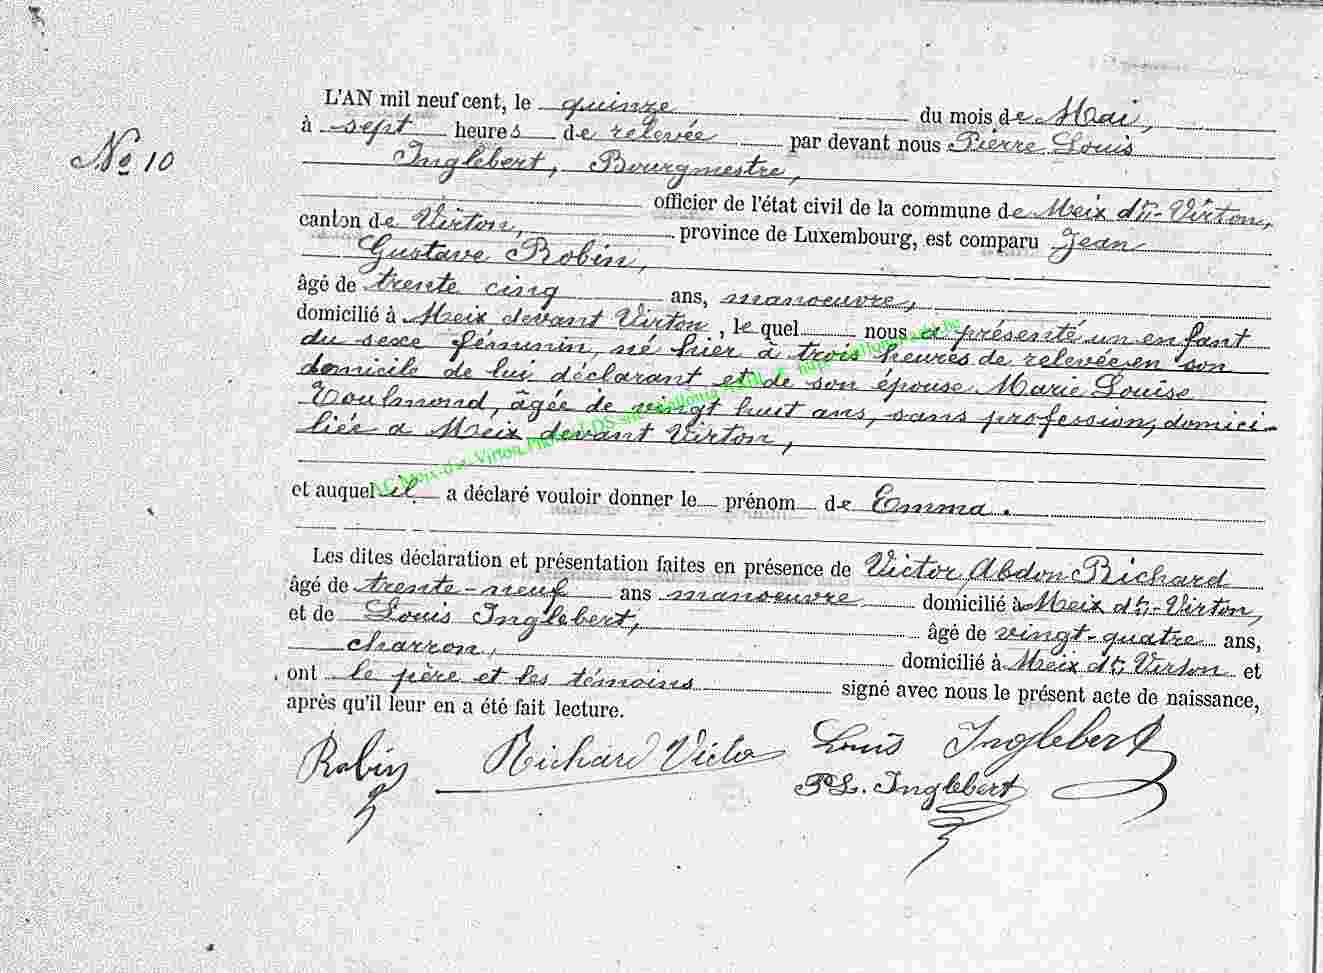 L'AN mil neuf cent, le quinze du mois de Mai,
No 10
à sept heures de relevée par devant nous Pierre Louis
Inglebert, Bourgmestre,
officier de l'état civil de la commune de Meix dt-Virton,
canton de Virton, province de Luxembourg, est comparu Jean
Gustave Robin,
âgé de trente cinq ans, manoeuvre,
domicilié à Meix devant Virton, le quel nous a présenté un enfant
du sexe féminin, né hier à trois heures de relevée en son
domicile de lui déclarant et de son épouse Marie Louise
Toulmond, âgée de vingt huit ans, sans profession, domici-
liée a Meix devant Virton,
et auquel il a déclaré vouloir donner le prénom de Emma.
Les dites déclaration et présentation faites en présence de Victor Abdon Richard
âgé de trente-neuf ans manoeuvre domicilié à Meix dt-Virton,
et de Louis Inglebert, âgé de vingt-quatre ans,
charron, domicilié à Meix dt Virton et
ont le père et les témoins signé avec nous le présent acte de naissance,
après qu'il leur en a été fait lecture.
Robin Richard Victo Louis Inglebert
PL. Inglebert